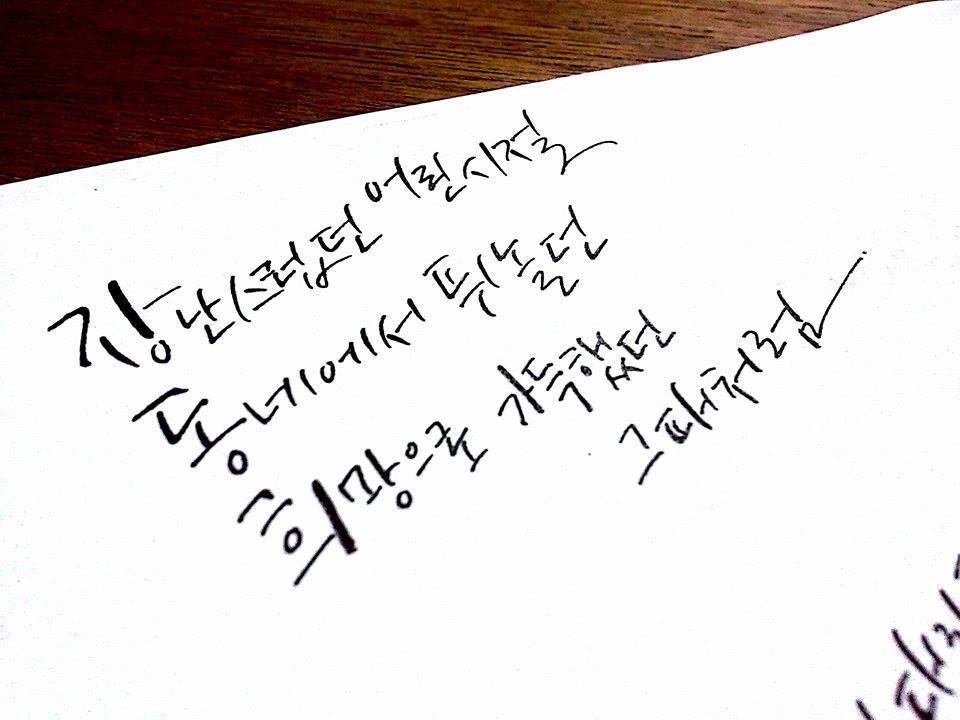 장난스럽던 어린시절
동네에서 뛰놀던
희망으로 가득했던
그때처럼